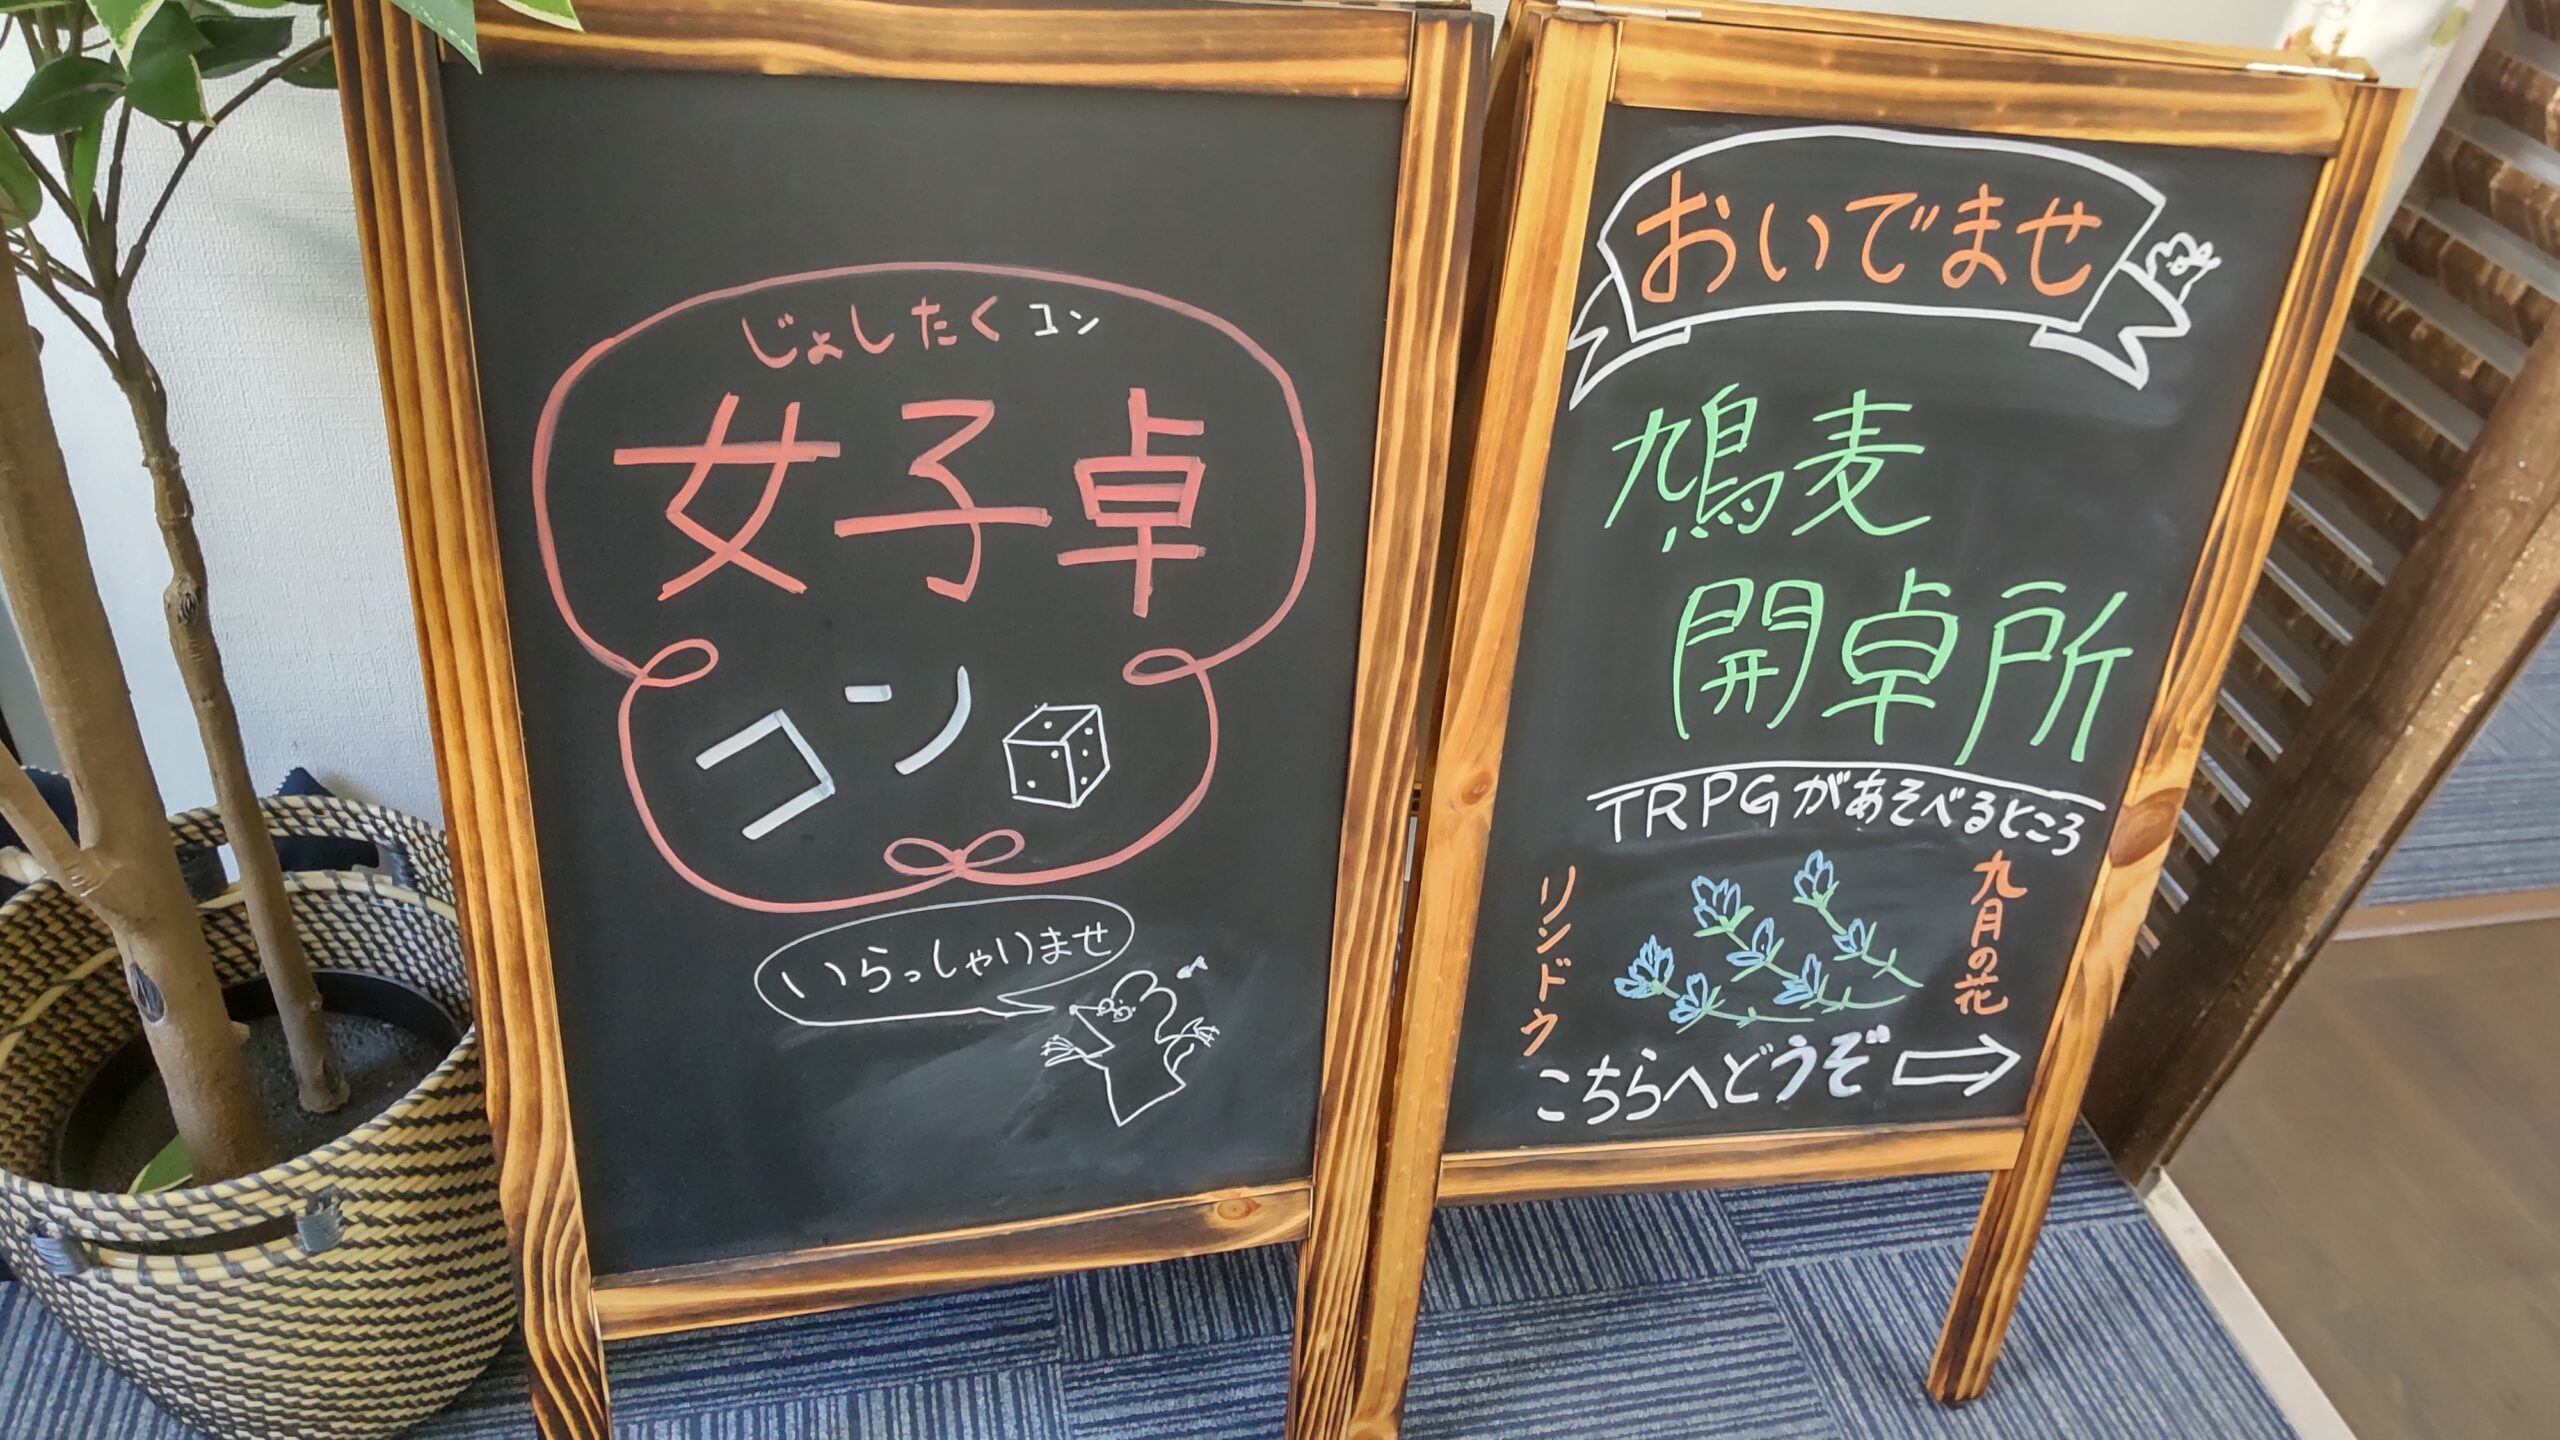 じょしたくコン
女子卓
コン
いらっしゃいませ
おいでませ
鳩麦
開卓所
TRPGがあそべるところ
九月の花
リンドウ
こちらへどうぞ